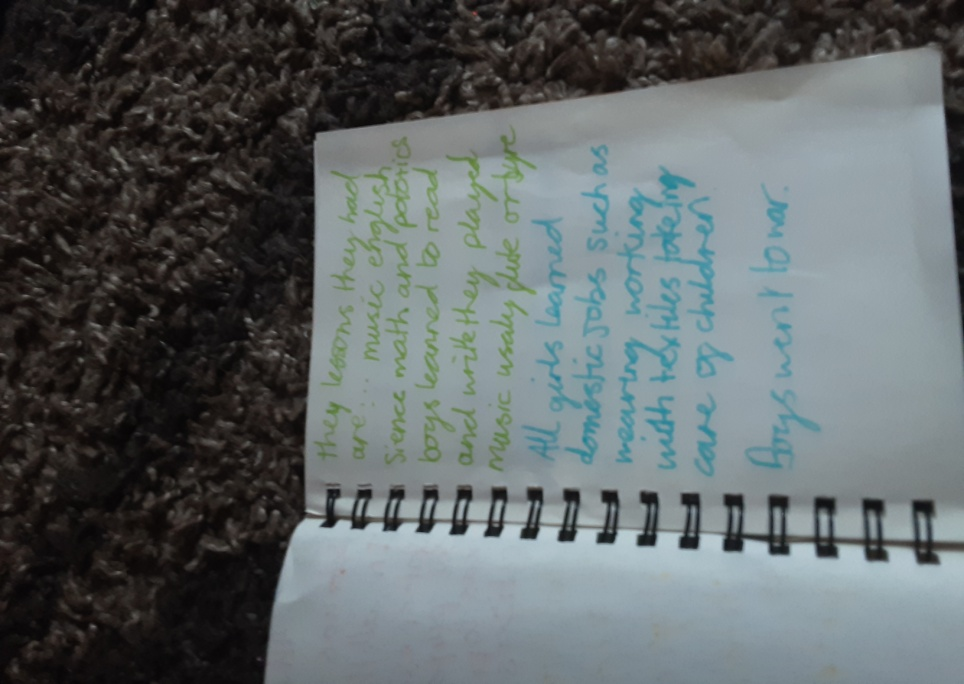 they lessons they had
are... music english
Sience math and potonics
boys learned to read
and write they played
music usaly flute or lyre
All girls learned
domestic jobs such as
wearing working
with textiles takeing
care of children
Boys went to war.